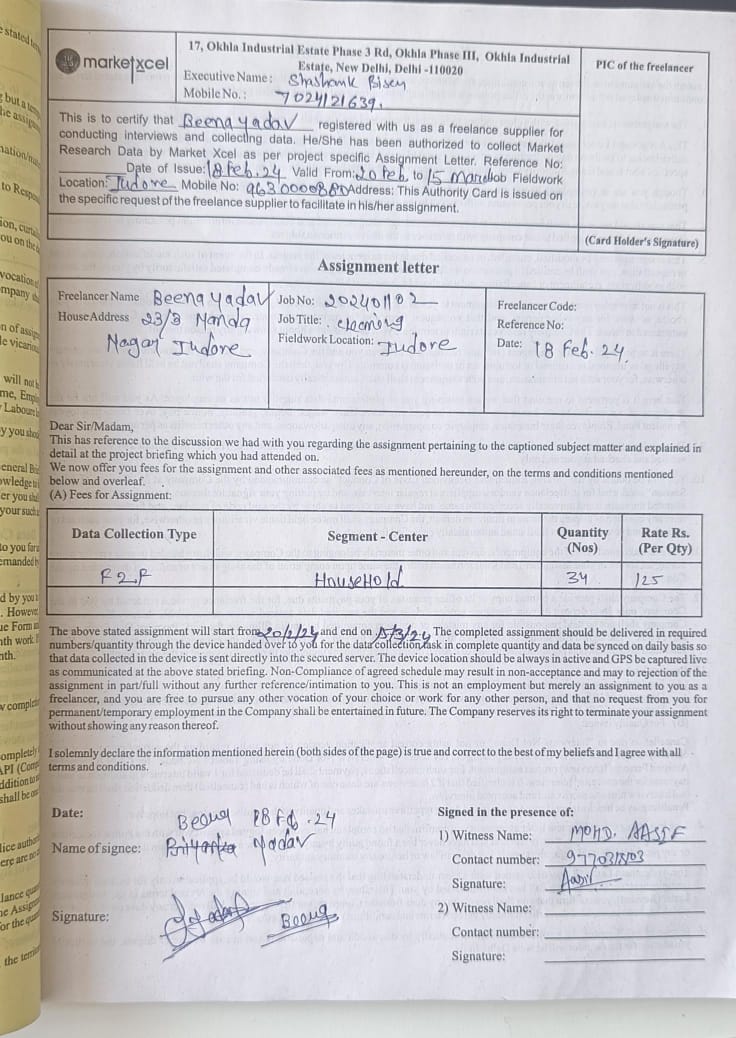 marketxcel
17, Okhla Industrial Estate Phase 3 Rd, Okhla Phase III, Okhla Industrial
Estate, New Delhi, Delhi -110020
Executive Name: Shshank Bisen
Mobile No.: 7024121639.
PIC of the freelancer
This is to certify that Beena yadav registered with us as a freelance supplier for
conducting interviews and collecting data. He/She has been authorized to collect Market
Research Data by Market Xcel as per project specific Assignment Letter. Reference No:
Date of Issue: 18 Feb. 24 Valid From: 20 Feb. to 15 March Job Fieldwork
Location: Indore Mobile No: Address: This Authority Card is issued on
the specific request of the freelance supplier to facilitate in his/her assignment.
(Card Holder's Signature)
Assignment letter
Freelancer Name Beena yadav
House Address 23/3 Nanda
Nagar Indore
Job No: 202401102
Job Title:
Fieldwork Location: Indore
Freelancer Code:
Reference No:
Date: 18 Feb. 24.
Dear Sir/Madam,
This has reference to the discussion we had with you regarding the assignment pertaining to the captioned subject matter and explained in
detail at the project briefing which you had attended on.
We now offer you fees for the assignment and other associated fees as mentioned hereunder, on the terms and conditions mentioned
below and overleaf.
(A) Fees for Assignment:
Data Collection Type Segment - Center Quantity (Nos) Rate Rs. (Per Qty)
F2F HouseHold 34 125
The above stated assignment will start from 20/2/24 and end on 15/3/24 The completed assignment should be delivered in required
numbers/quantity through the device handed over to you for the data collection task in complete quantity and data be synced on daily basis so
that data collected in the device is sent directly into the secured server. The device location should be always in active and GPS be captured live
as communicated at the above stated briefing. Non-Compliance of agreed schedule may result in non-acceptance and may to rejection of the
assignment in part/full without any further reference/intimation to you. This is not an employment but merely an assignment to you as a
freelancer, and you are free to pursue any other vocation of your choice or work for any other person, and that no request from you for
permanent/temporary employment in the Company shall be entertained in future. The Company reserves its right to terminate your assignment
without showing any reason thereof.
I solemnly declare the information mentioned herein (both sides of the page) is true and correct to the best of my beliefs and I agree with all
terms and conditions.
Date: 18 Feb. 24
Name of signee: Beena Yadav
Signature: Beena
Signed in the presence of:
1) Witness Name: MOHD. AASIF
Contact number:
Signature: Aasif
2) Witness Name:
Contact number:
Signature: